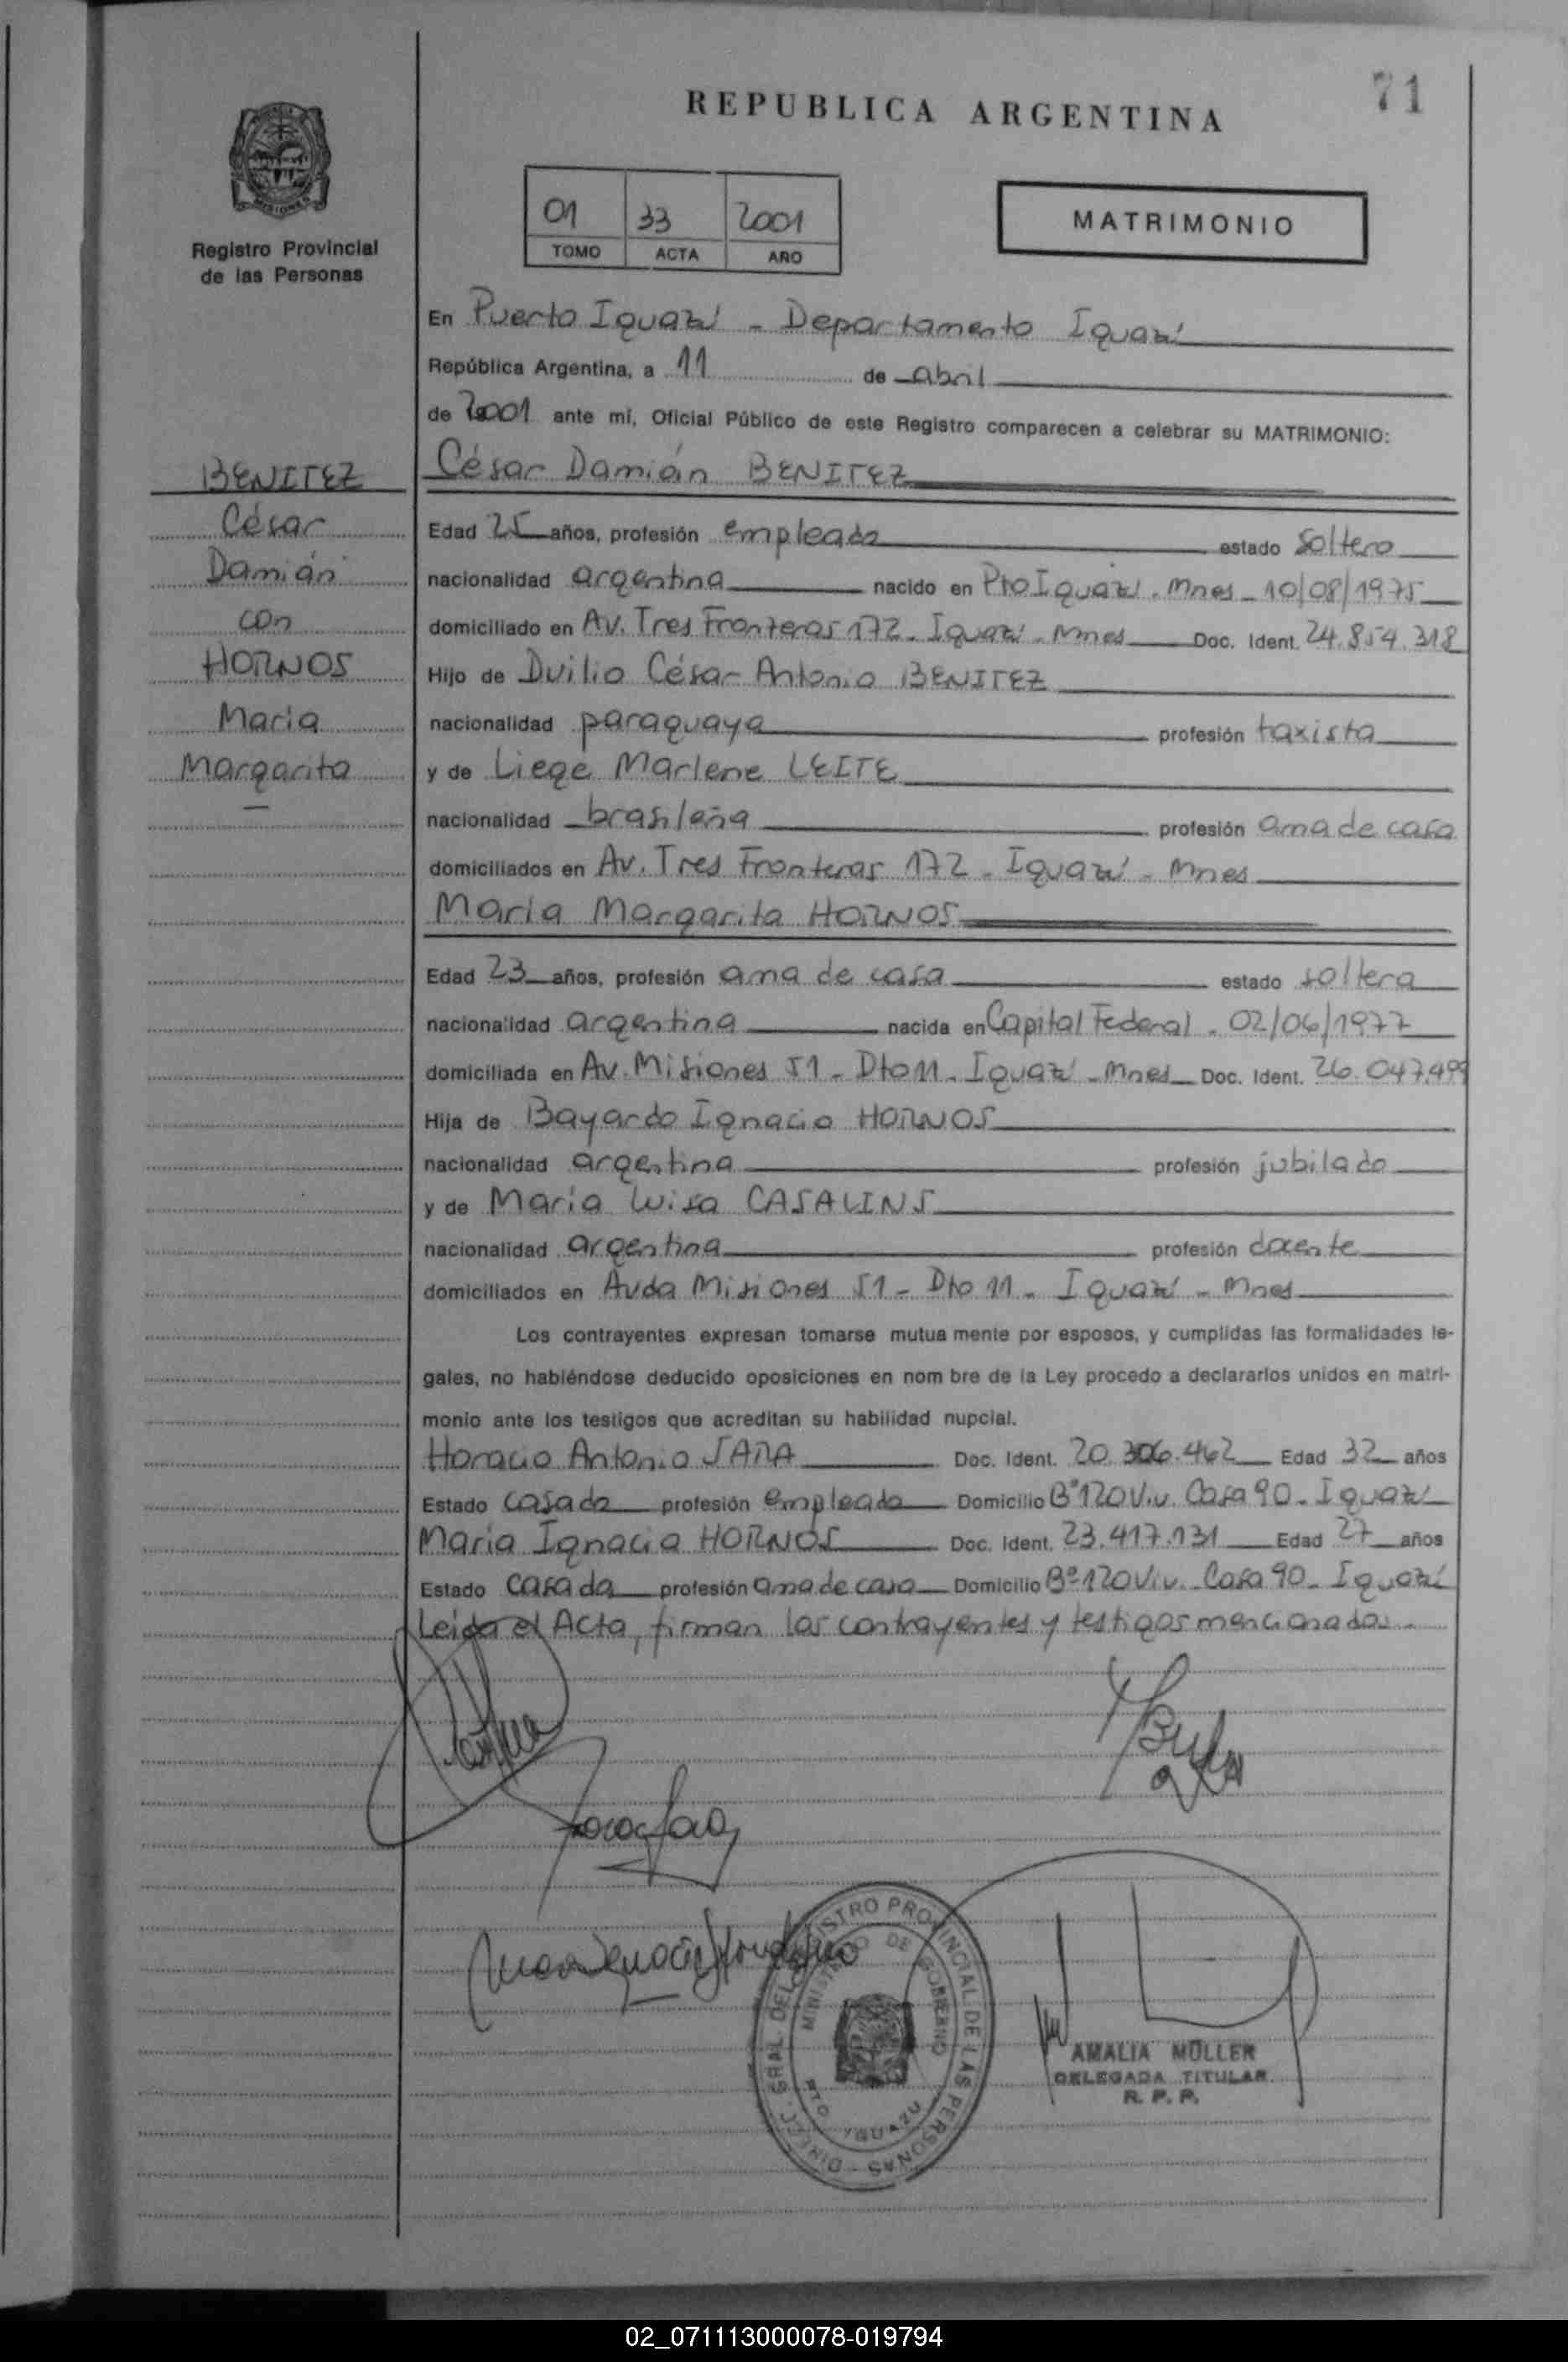 71
REPUBLICA ARGENTINA
MISIONES
Registro Provincial
de las Personas
01 33 2001
TOMO ACTA AÑO
MATRIMONIO
En Puerto Iguazú - Departamento Iguazú
República Argentina, a 11 de abril
de 2001 ante mí, Oficial Público de este Registro comparecen a celebrar su MATRIMONIO:
BENITEZ
César
Damián
con
HORNOS
Maria
Margarita
César Damián BENITEZ
Edad 25 años, profesión empleado estado soltero
nacionalidad argentina nacido en Pto Iguazú. Mnes - 10/08/1975
domiciliado en Av. Tres Fronteras 172 - Iguazú - Mnes Doc. Ident. 24.854.318
Hijo de Duilio César Antonio BENITEZ
nacionalidad paraguaya profesión taxista
y de Liege Marlene LEITE
nacionalidad brasileña profesión ama de casa
domiciliados en Av. Tres Fronteras 172 - Iguazú - Mnes
María Margarita HORNOS
Edad 23 años, profesión ama de casa estado soltera
nacionalidad argentina nacida en Capital Federal - 02/06/1977
domiciliada en Av. Misiones 51 - Dto 11 - Iguazú - Mnes Doc. Ident. 26.047.499
Hija de Bayardo Ignacio HORNOS
nacionalidad argentina profesión jubilado
y de María Luisa CASALINS
nacionalidad argentina profesión docente
domiciliados en Avda Misiones 51 - Dto 11 - Iguazú - Mnes
Los contrayentes expresan tomarse mutua mente por esposos, y cumplidas las formalidades le-
gales, no habiéndose deducido oposiciones en nom bre de la Ley procedo a declararlos unidos en matri-
monio ante los testigos que acreditan su habilidad nupcial.
Horacio Antonio JARA Doc. Ident. 20.306.462 Edad 32 años
Estado casado profesión empleado Domicilio Bº 120 Viv. Casa 90 - Iguazú
María Ignacia HORNOS Doc. Ident. 23.417.131 Edad 27 años
Estado casada profesión ama de casa Domicilio Bº 120 Viv. Casa 90 - Iguazú
Leida el Acta, firman los contrayentes y testigos mencionados.
DIREC. GRAL. DEL REGISTRO PROVINCIAL DE LAS PERSONAS
MINISTERIO DE GOBIERNO
PTO IGUAZU
AMALIA MÜLLER
DELEGADA TITULAR
R. P. P.
02_071113000078-019794